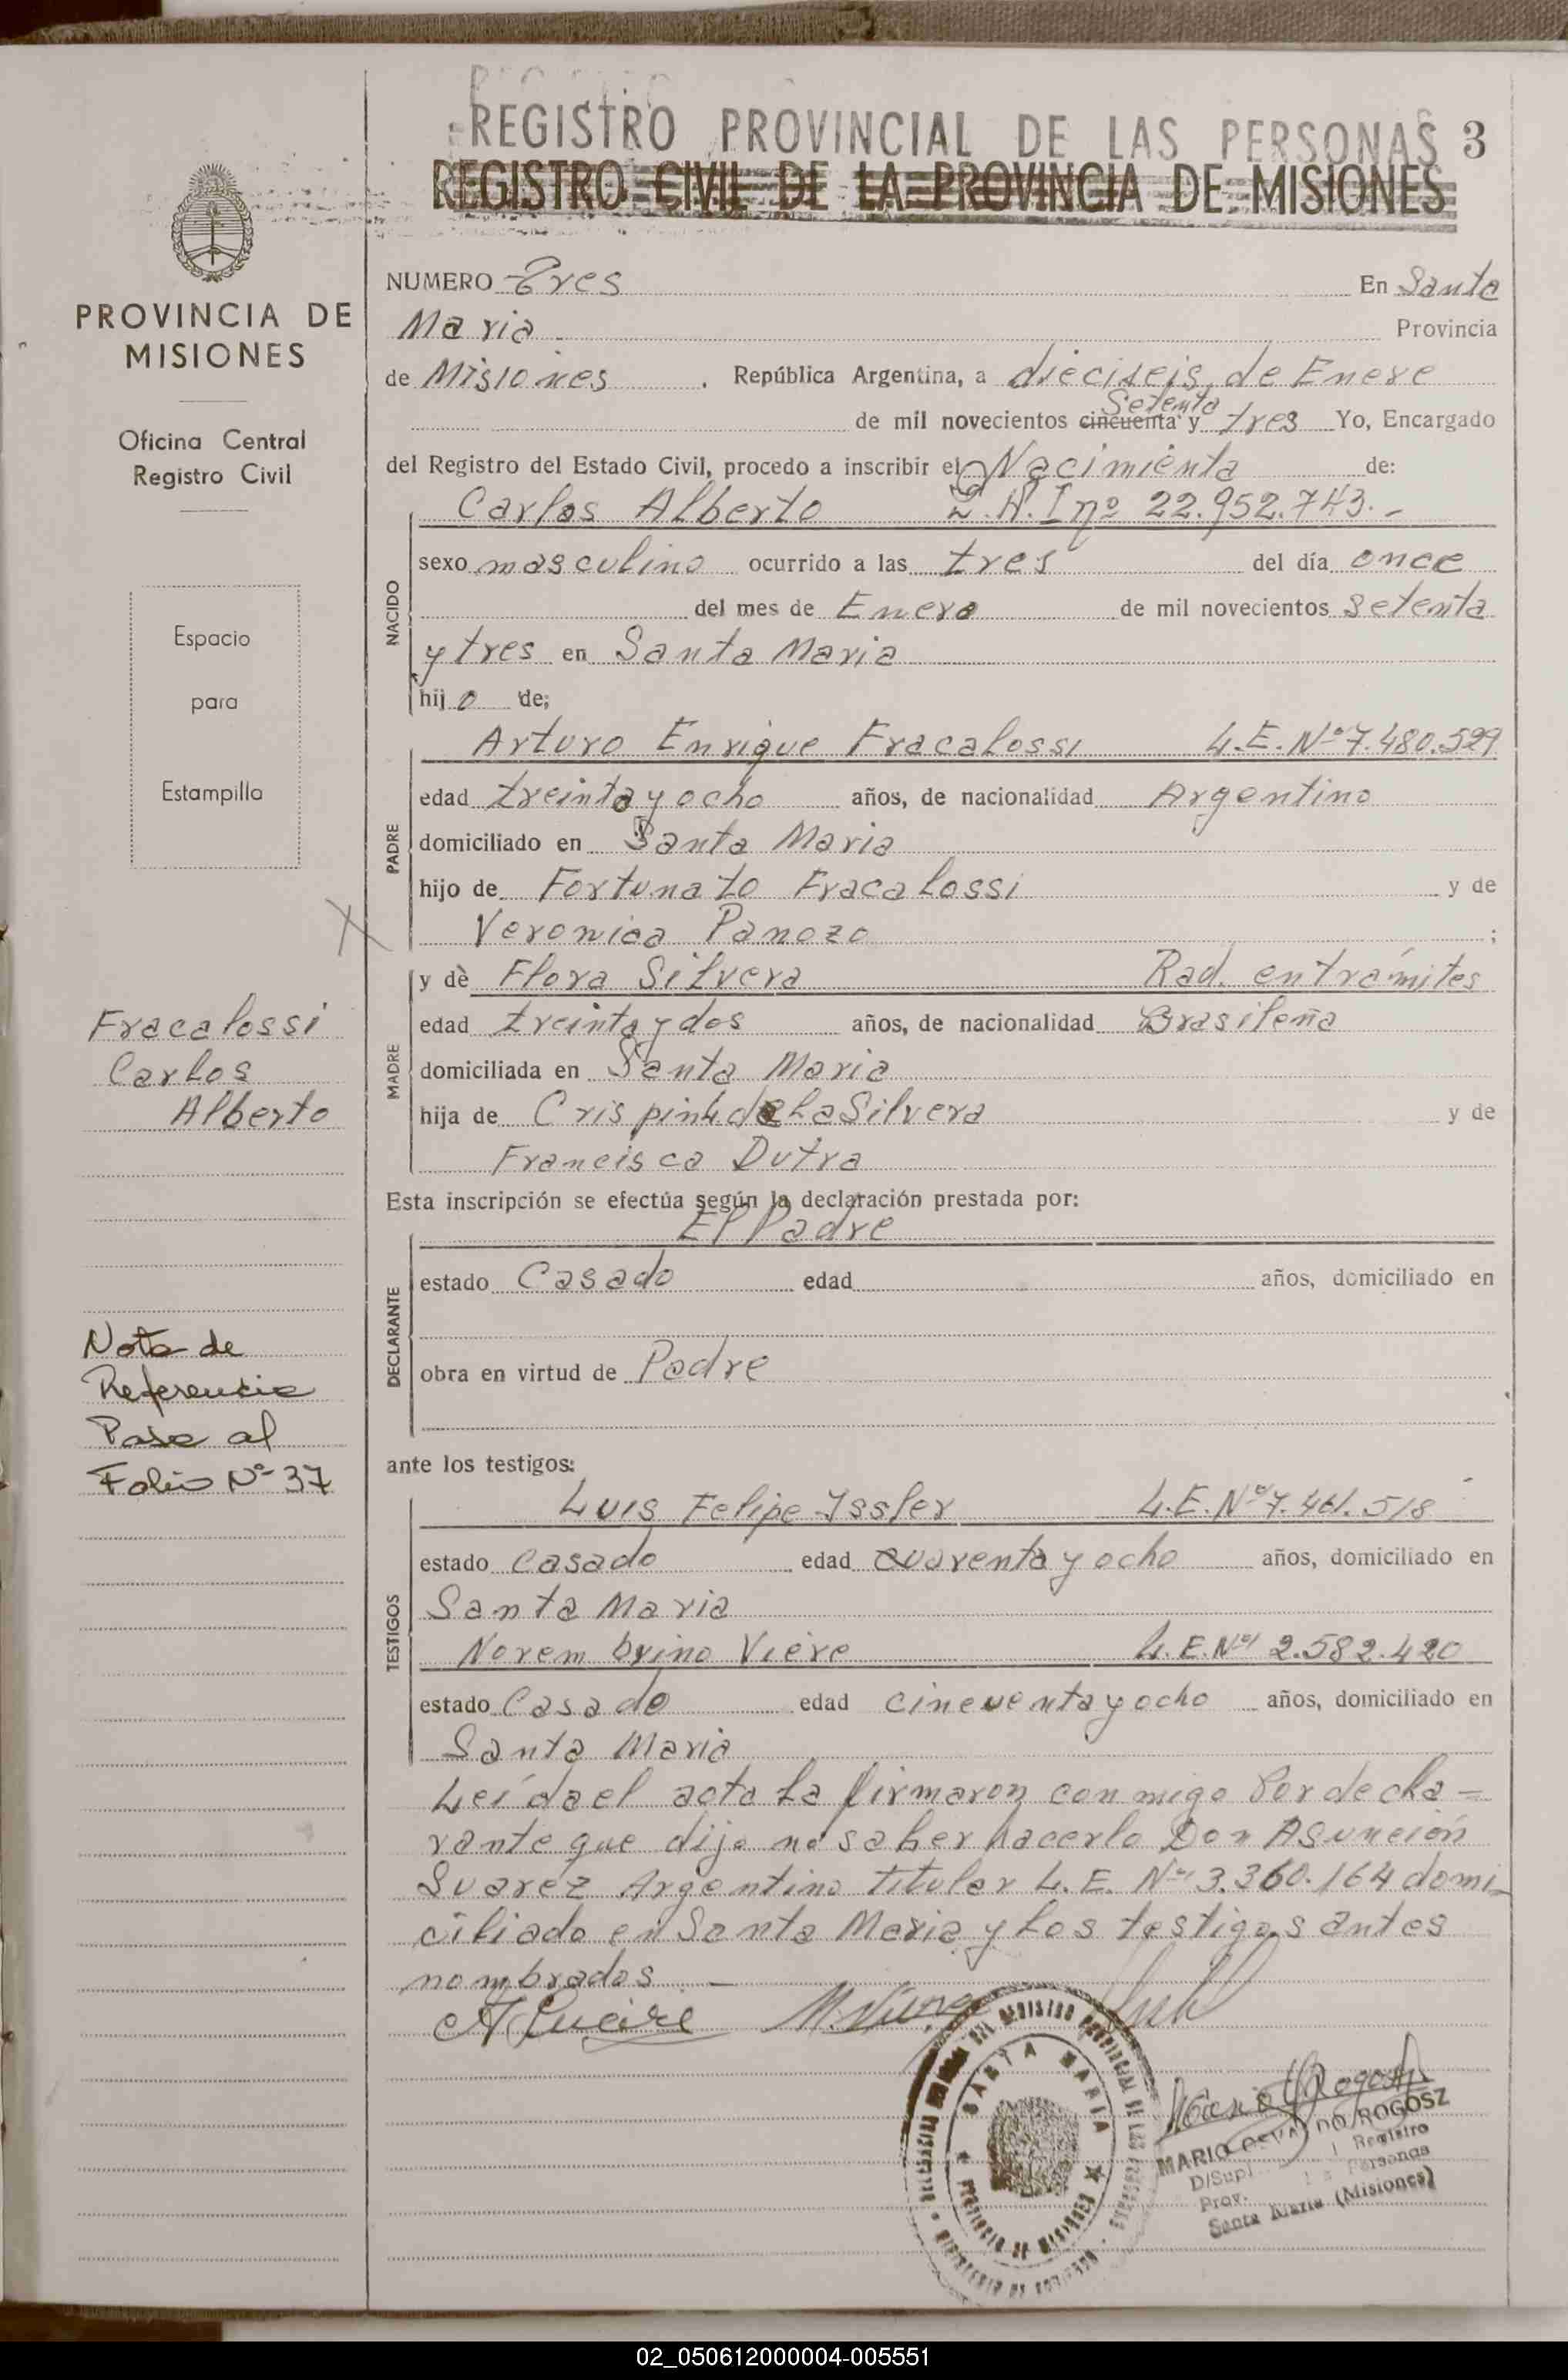 REGISTRO PROVINCIAL DE LAS PERSONAS 3
REGISTRO CIVIL DE LA PROVINCIA DE MISIONES
PROVINCIA DE
MISIONES
Oficina Central
Registro Civil
Espacio
para
Estampilla
Fracalossi
Carlos
Alberto
Nota de
Referencia
Pase al
Folio Nº 37
NUMERO Tres En Santa
Maria Provincia
de Misiones, República Argentina, a dieciseis de Enero
Setenta
de mil novecientos cincuenta y tres Yo, Encargado
del Registro del Estado Civil, procedo a inscribir el Nacimiento de:
NACIDO
Carlos Alberto D.N.I nº 22.952.743.-
sexo masculino ocurrido a las tres del día once
del mes de Enero de mil novecientos setenta
y tres en Santa Maria
hijo de;
PADRE
Arturo Enrique Fracalossi L.E. Nº 7.480.529
edad treinta y ocho años, de nacionalidad Argentino
domiciliado en Santa Maria
hijo de Fortunato Fracalossi y de
Veronica Panozo ;
MADRE
y de Flora Silvera Rad. en trámites
edad treinta y dos años, de nacionalidad Brasileña
domiciliada en Santa Maria
hija de Crispin de la Silvera y de
Francisca Dutra
Esta inscripción se efectúa según la declaración prestada por:
DECLARANTE
El Padre
estado Casado edad años, domiciliado en
obra en virtud de Padre
ante los testigos:
TESTIGOS
Luis Felipe Issler L.E. Nº 7.461.518
estado casado edad cuarenta y ocho años, domiciliado en
Santa Maria
Norembrino Viere L.E. Nº 2.582.420
estado Casado edad cincuenta y ocho años, domiciliado en
Santa Maria
Leída el acta la firmaron conmigo Por decla=
rante que dijo no saber hacerlo Don Asunción
Suarez Argentino titular L.E. Nº 3.360.164 domi-
ciliado en Santa Maria y los testigos antes
nombrados —
SANTA MARIA
PROVINCIA DE MISIONES
MARIO OSVALDO ROGOSZ
D/Supl. Registro
Prov. Personas
Santa Maria (Misiones)
02_050612000004-005551